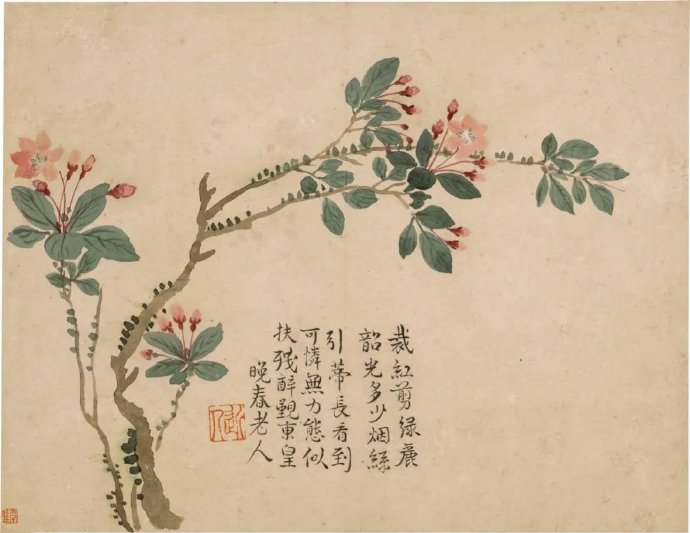 裁紅剪綠麗
韶光多少烟絲
引蒂長看到
可憐無力態似
扶殘醉覲東皇
晚春老人